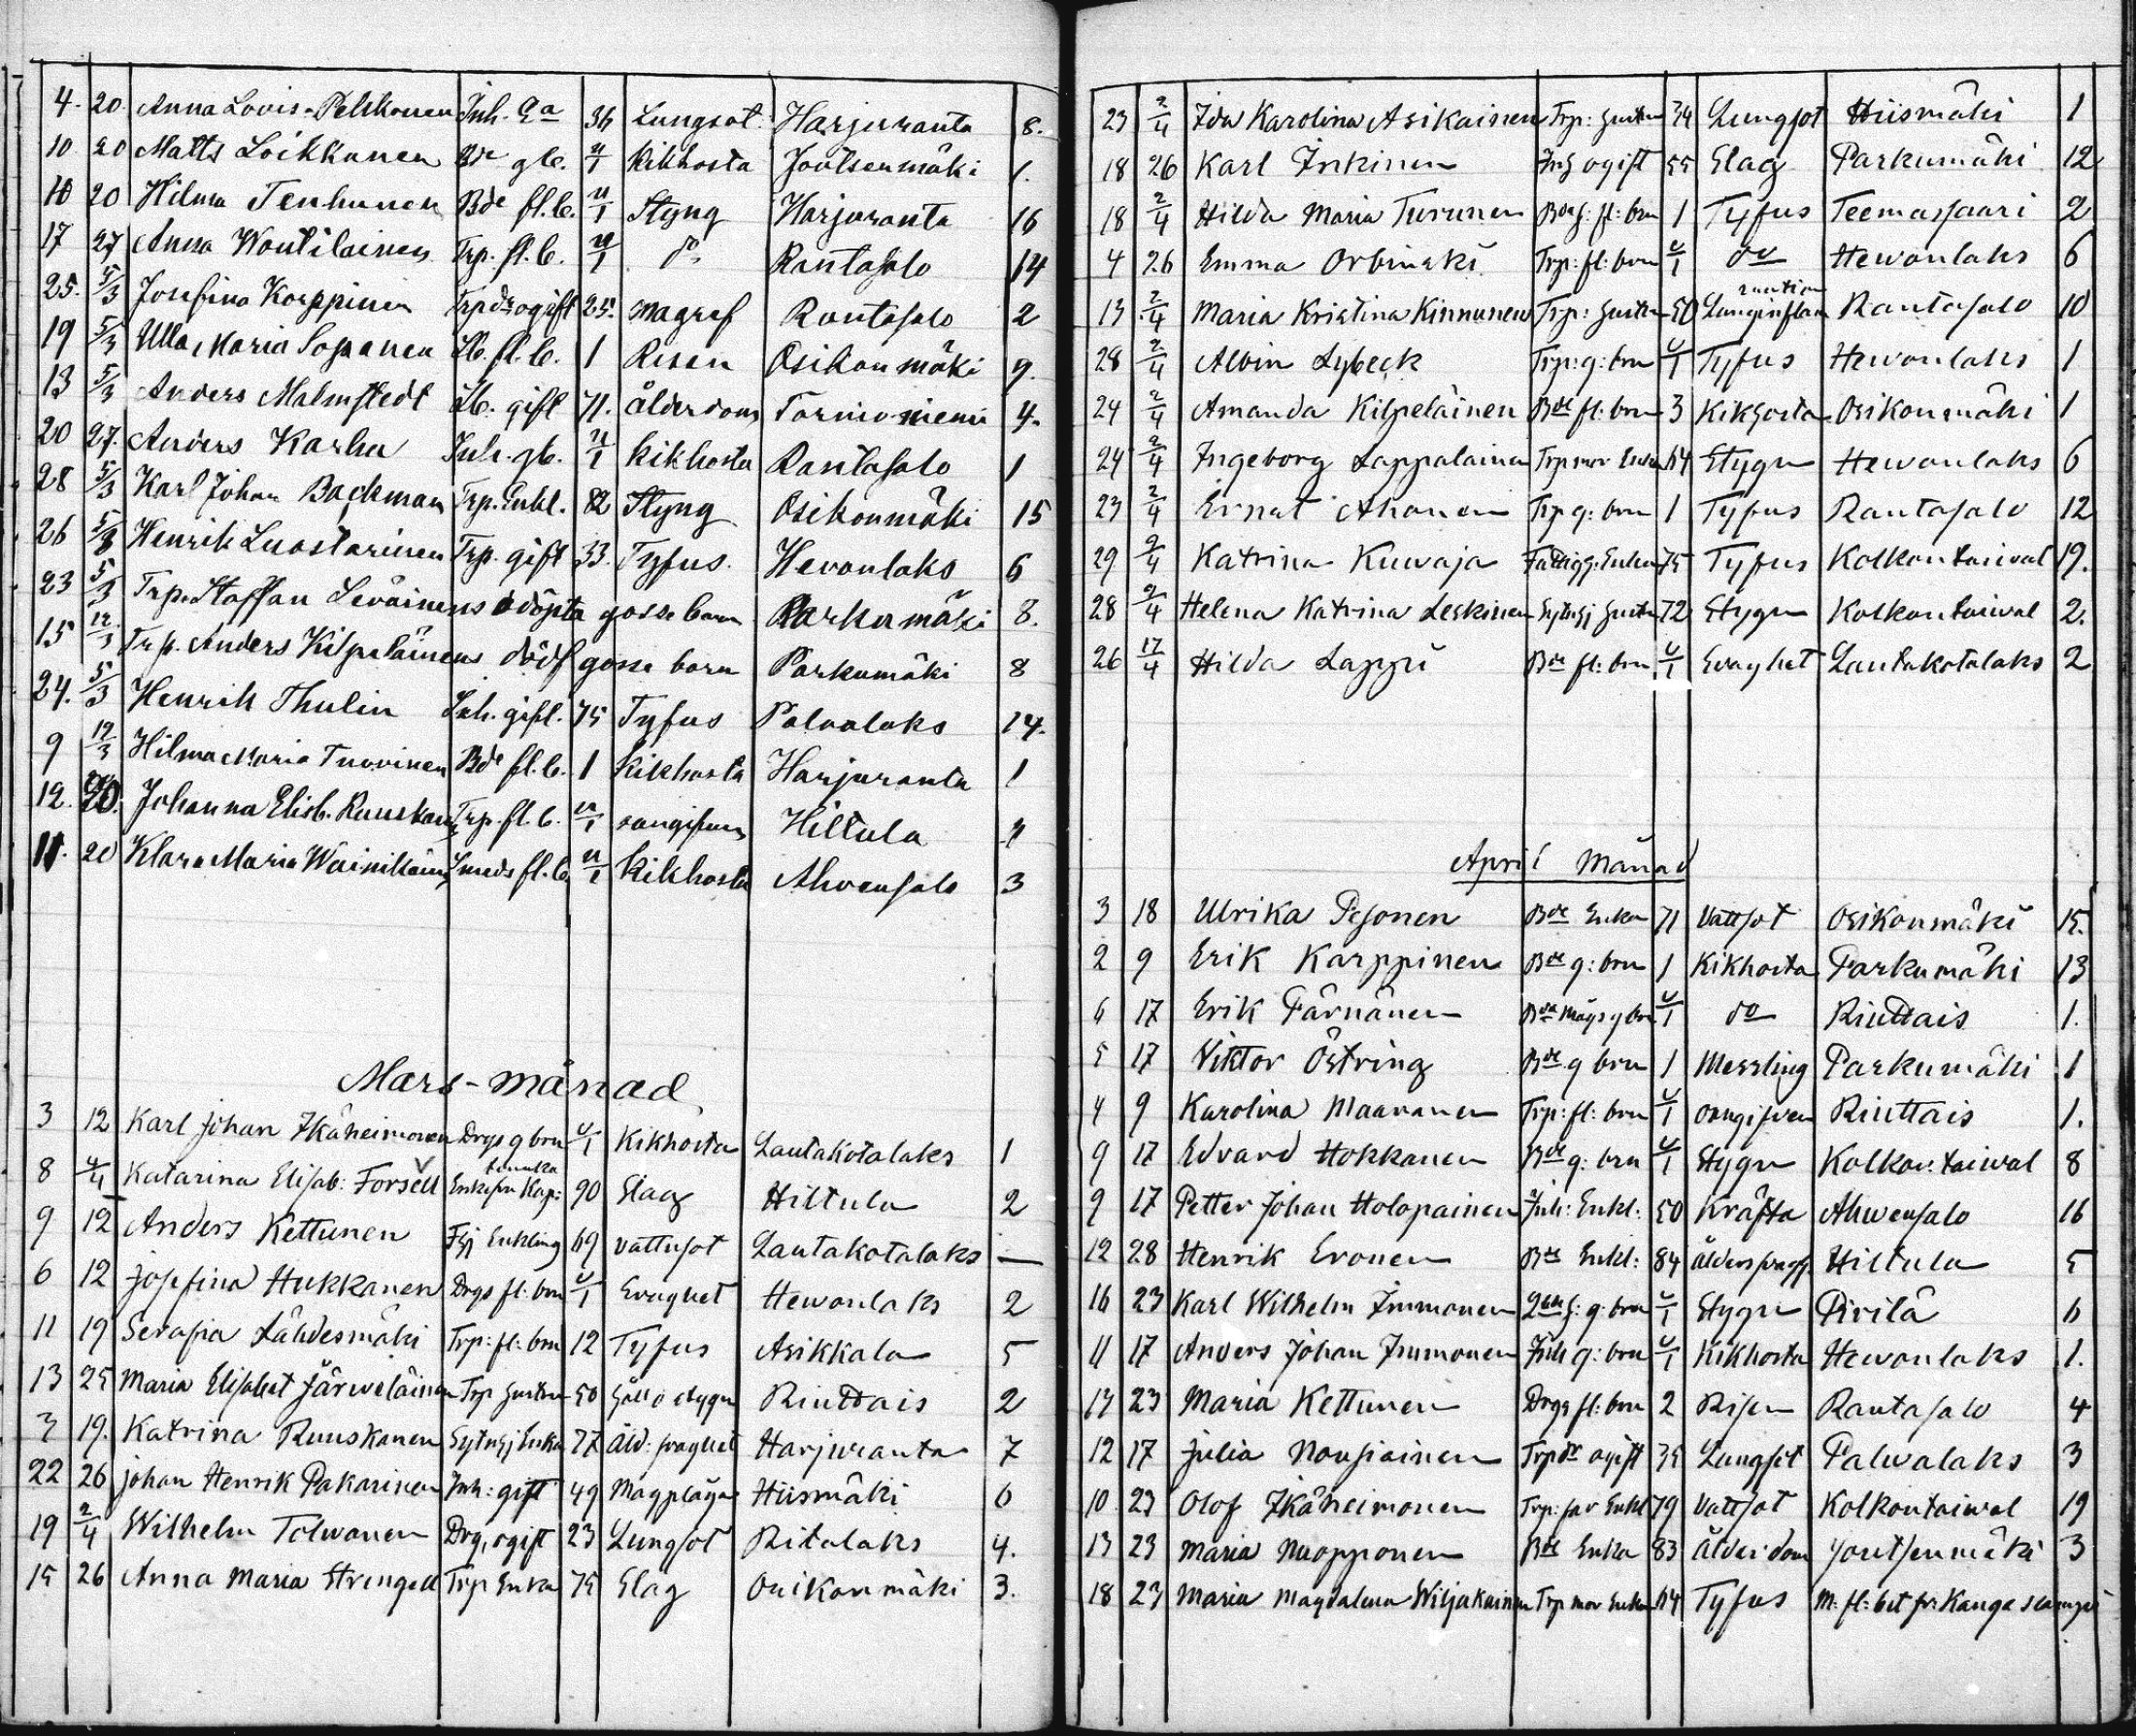 4. 20. Anna Lovis. Pelkkonen Inh. Qa 36 Lungsot. Harjuranta 8.
10 20 Matts Loikkanen Bde gb. u/1 Kikhosta Joutsenmäki 1.
10 20 Hilma Tenhunen Bde fl.b. u/1 Styng Harjuranta 16
17 27 Anna Woutilainen Trp. fl.b. u/1 do Rantasalo 14
25. 5/3 Josefina Korppinen Trpdr ogift 25. magref Rantasalo 2
19 5/3 Ulla Maria Sopanen Lb. fl.b. 1 Risen Osikonmäki 9.
13 5/3 Anders Malmstedt Lb. gift 71. ålderdom Torninniemi 4.
20 27. Anders Karhu Inh. gb. u/1 kikhosta Rantasalo 1
28 5/3 Karl Johan Backman Trp. Enkl. 82 Styng Osikonmäki 15
26 5/3 Henrik Luostarinen Trp. gift 33. Tyfus. Hevonlaks 6
23 5/3 Trp. Staffan Leväinens odöpta gosse barn Parkumäki 8.
15 12/3 Trp. Anders Kilpeläinens dödf gosse barn Parkumäki 8
24. 5/3 Henrik Thulin Inh. gift. 75 Tyfus Palvalaks 14.
9 12/3 Hilma Maria Tuovinen Bde fl.b. 1 Kikhosta Harjuranta 1
12. 20. Johanna Elisb. Ruuskanen Trp. fl.b. u/1 oangifven Hiltula
11. 20 Klara Maria Wainikainen Smeds fl.b. u/1 Kikhosta Ahvensalo 3
Mars-månad
3 12 Karl Johan Ikäheimonen Drgs g brn u/1 Kikhosta Lautakotalaks 1
8 4/4 Katarina Elisab: Forsell Enkefru Kap: 90 Slag Hiltula 2
9 12 Anders Kettunen Fsj Enkling 69 Vattusot Lautakotalaks —
6 12 Josefina Hukkanen Drgs fl: brn u/1 Svaghet Hewonlaks 2
11 19 Serafia Lähdesmäki Trp: fl: brn 12 Tyfus Asikkala 5
13 25 Maria Elisabet Järweläinen Trp hustru 50 håll o stygn Riuttais 2
3 19. Katrina Ruuskanen Sytngj Enka 77 Åld: svaghet Harjuranta 7
22 26 Johan Henrik Pakarinen Inh: gift 49 Magplåga Hiismäki 6
19 2/4 Wilhelm Tolwanen Drg, ogift 23 Lungsot Ritalaks 4.
15 26 Anna Maria Strengell Trp Enka 75 Slag Osikonmäki 3.
23 2/4 Ida Karolina Asikainen Trp: hustru 34 Lungsot Hiismäki 1
18 26 Karl Inkinen Inh ogift 55 Slag Parkumäki 12
18 2/4 Hilda Maria Turunen Bdes: fl: brn 1 Tyfus Teemassaari 2
4 26 Emma Orbinski Trp: fl: brn u/1 do Hewonlaks 6
13 2/4 Maria Kristina Kinnunen Trp: hustru 50 Lunginflammation Rantasalo 10
28 2/4 Alvin Lybeck Trp: g: brn u/1 Tyfus Hewonlaks 1
24 2/4 Amanda Kilpeläinen Bde fl: brn 3 Kikhosta Osikonmäki 1
24 2/4 Ingeborg Lappalainen Trp mor Enka 64 Stygn Hewonlaks 6
23 2/4 Ernst Ahonen Trp g: brn 1 Tyfus Rantasalo 12
29 2/4 Katrina Kuwaja Fattigg: Enka 75 Tyfus Kolkontaiwal 19.
28 2/4 Helena Katrina Leskinen Sytngj hustru 72 Stygn Kolkontaiwal 2.
26 17/4 Hilda Lappi Bde fl: brn u/1 Svaghet Lautakotalaks 2
April Månad
3 18 Ulrika Pesonen Bde Enka 71 Vattsot Osikonmäki 15.
2 9 Erik Karppinen Bde g: brn 1 Kikhosta Parkumäki 13
6 17 Erik Pärnänen Bde mågs g brn u/1 do Riuttais 1.
5 17 Viktor Östring Bde g brn 1 Messling Parkumäki 1
4 9 Karolina Maaranen Trp: fl: brn u/1 oangifven Riuttais 1.
9 17 Edvard Hokkanen Bde g: brn u/1 Stygn Kolkontaiwal 8
9 17 Petter Johan Holopainen Inh: Enkl: 50 Kräfta Ahwensalo 16
12 28 Henrik Eronen Bde Enkl: 84 ålderssvagh. Hiltula 5
16 23 Karl Wilhelm Immonen g: brn u/1 Stygn Pirilä 6
11 17 Anders Johan Immonen Inh g: brn u/1 Kikhosta Hewonlaks 1.
14 23 Maria Kettunen Drgs fl: brn 2 Risen Rantasalo 4
12 17 Julia Nousiainen Trpdr ogift 35 Lungsot Palwalaks 3
10. 23 Olof Ikäheimonen Trp: far Enkl 79 Vattsot Kolkontaiwal 19
13 23 Maria Nuopponen Bde Enka 83 Ålderdom Joutsenmäki 3
18 23 Maria Magdalena Wiljakainen Trp mor Enka 64 Tyfus M. fl: bet fr: Kangaslampi